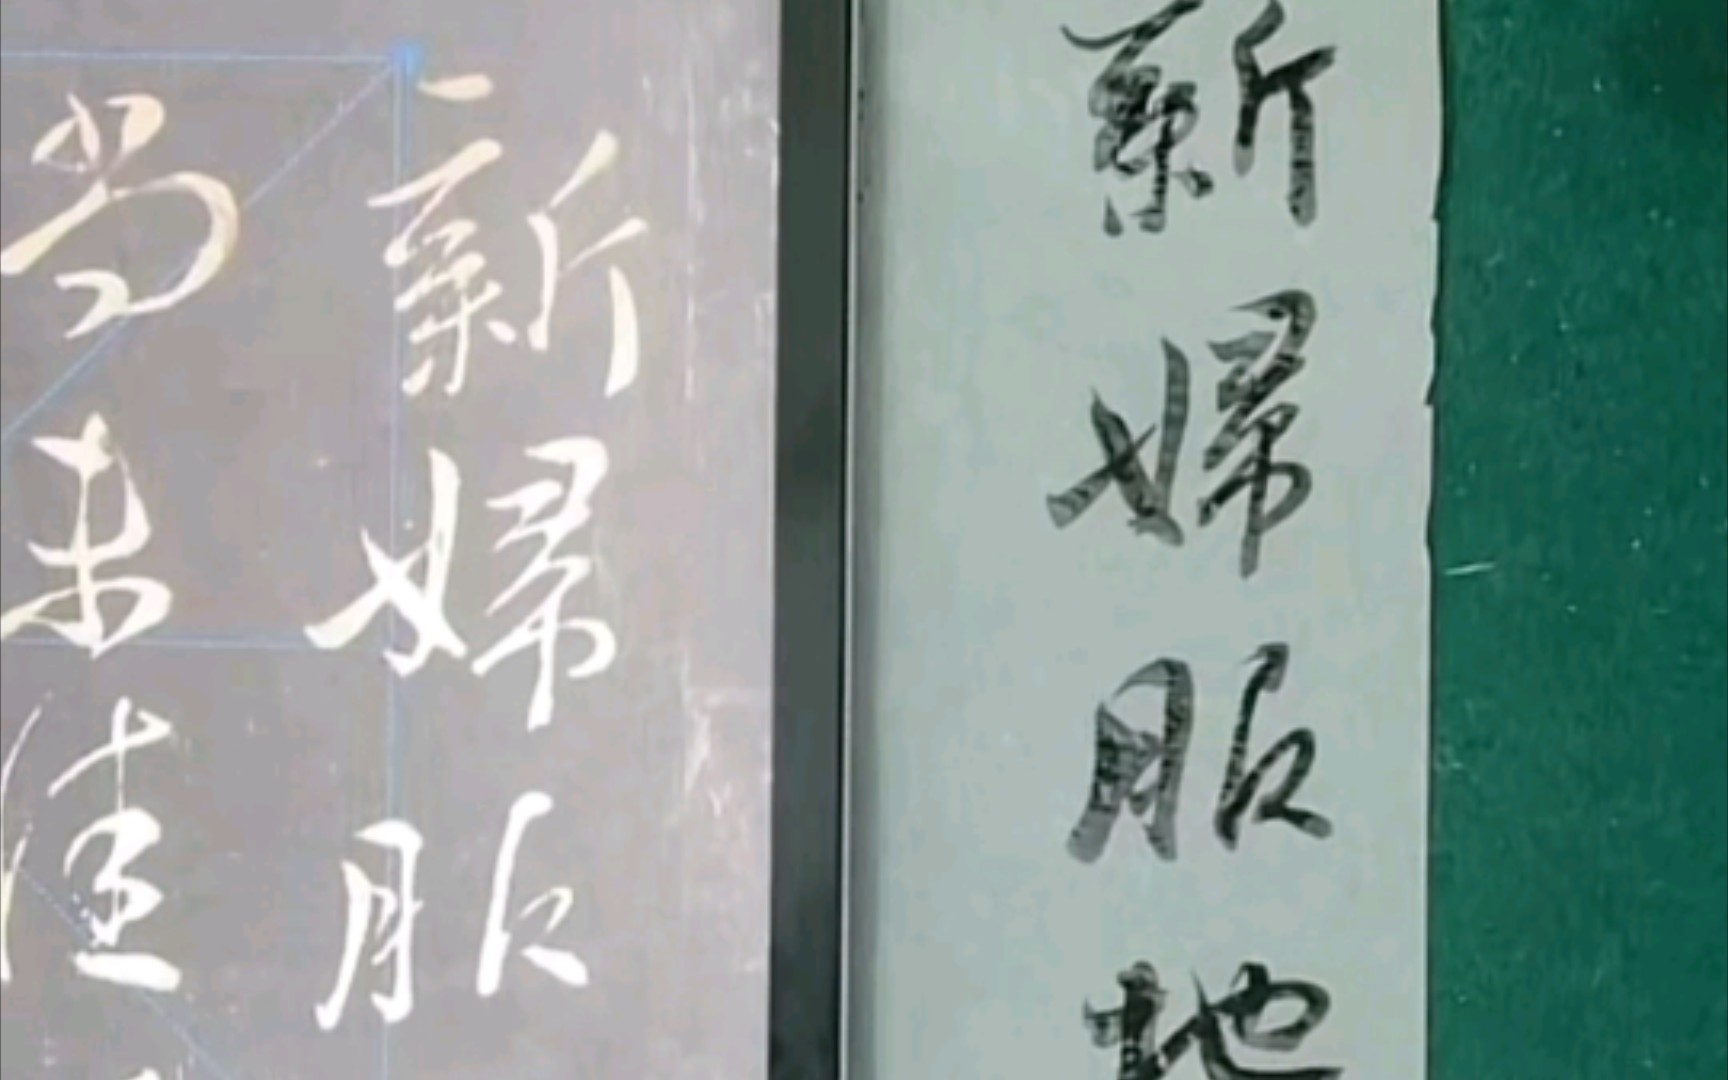 新婦服
尚未佳
新婦服地